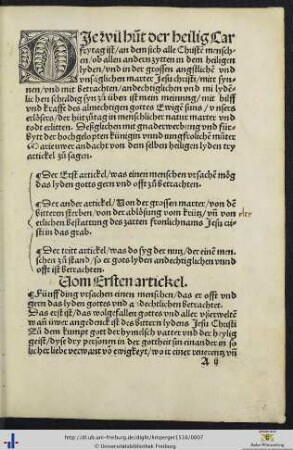 Die weil hüt der heilig Car
freytag ist / an dem sich alle Christē mensch
en / ob allen andern zytten in dem heiligen
lyden / vnd in der grossen angstlichē vnd
vnsäglichen marter Jesu christi / mit syn
nen / vnd mit betrachten / andechtiglichen vnd mi lydēt
lichen schuldig syn zů üben ist mein meinung / mit hilff
vnd krafft des almechtigen gottes Ewigē suns / vnsers
erlösers / der hüt zůtag in menschlicher natur marter vnd
todt erlitten. Deßglichen mit gnad erwerbung vnd für
bytt der hochgelopten künigin vnnd iungfrölichē můter
Marie uwer andacht von dem selben heiligen lyden try
artickel zů sagen.
¶ Der Erst artickel / was einen menschen vrsachē mög
das lyden gottes gern vnd offt zů betrachten.
¶ Der ander artickel / Von der grossen marter / von dē
bitteren sterben / von der ablösung vom krütz / vn̄ von
erlichen bestattung des zarten fronlichnams Jesu cri
sti in das grab.
¶ Der trit artickel / was do syg der nutz / der einē men
schen zů stand / so er gots lyden andechtiglichen vnnd
offt ist betrachten.
Vom Ersten artickel.
¶ Fünff ding vrsachen einen menschen / das er offt vnd
gern das lyden gottes vnd andechtlichen betrachtet.
Das erst ist / das wolgefallen gottes vnd aller vserwelte
wan̄ uwer angedenck ist des bittern lydens Jesu Christi
Zů dem kumpt gott der hymelsch vatter vnd der heylig
geist / dyse dry personen in der gottheit sin einander in so
licher liebe verwant vō ewigkeyt / wo it einer reuerentz vn̄
A ij
http://dl.ub.uni-freiburg.de/diglit/keisperger1516/0007
Baden-Württemberg